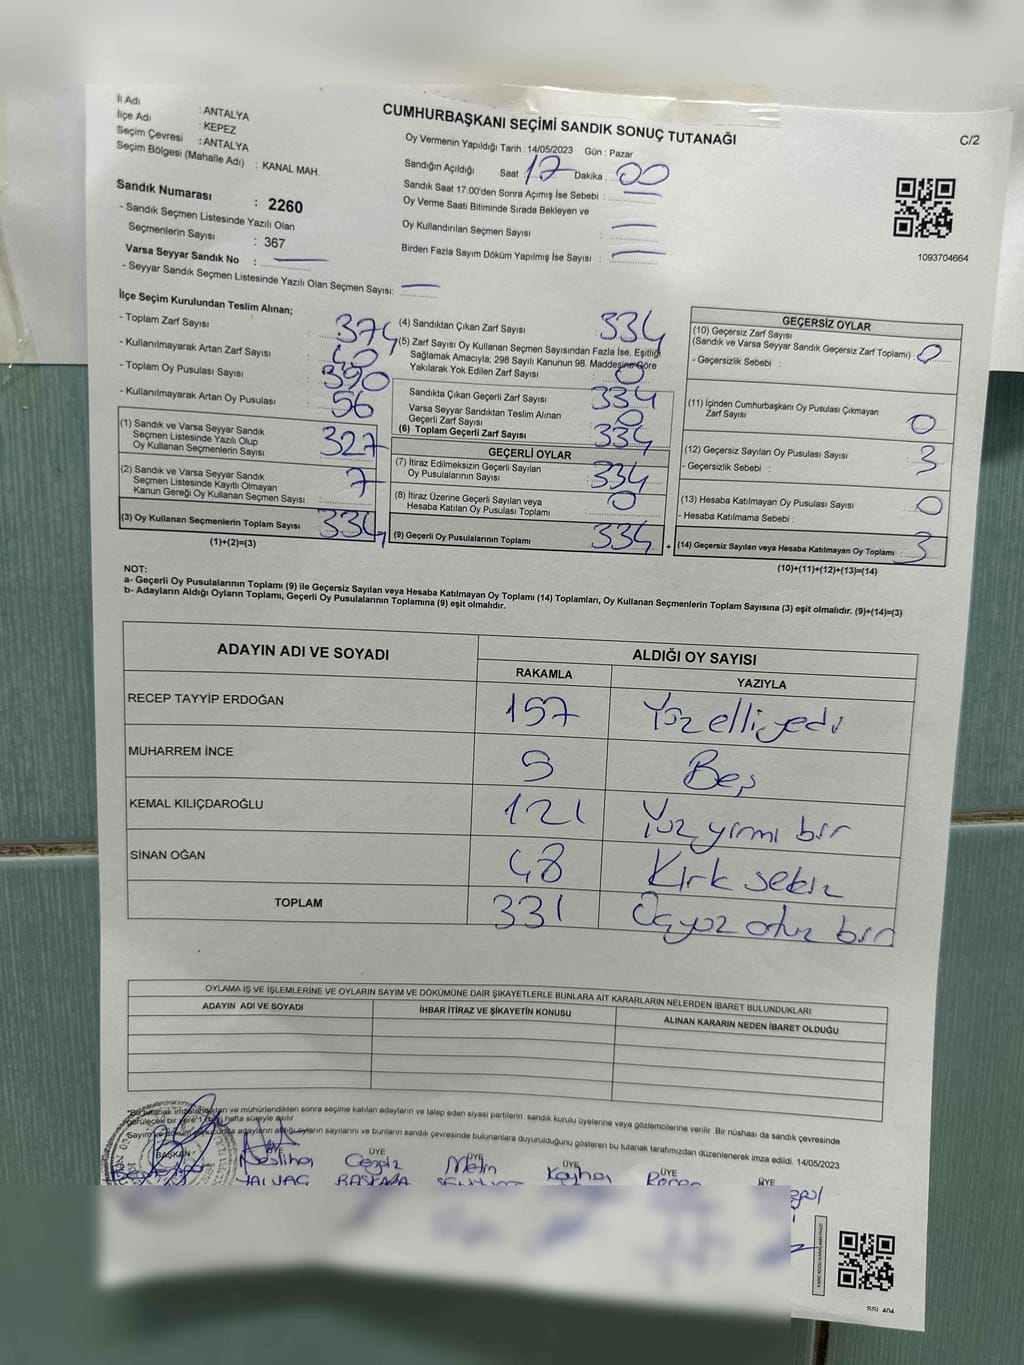 İl Adı : ANTALYA
İlçe Adı : KEPEZ
Seçim Çevresi : ANTALYA
Seçim Bölgesi (Mahalle Adı) : KANAL MAH.
Sandık Numarası : 2260
- Sandık Seçmen Listesinde Yazılı Olan
Seçmenlerin Sayısı : 367
Varsa Seyyar Sandık No :
- Seyyar Sandık Seçmen Listesinde Yazılı Olan Seçmen Sayısı:
CUMHURBAŞKANI SEÇİMİ SANDIK SONUÇ TUTANAĞI
C/2
Oy Vermenin Yapıldığı Tarih : 14/05/2023 Gün : Pazar
Sandığın Açıldığı Saat : 17 Dakika : 00
Sandık Saat 17:00'den Sonra Açımış İse Sebebi :
Oy Verme Saati Bitiminde Sırada Bekleyen ve
Oy Kullandırılan Seçmen Sayısı :
Birden Fazla Sayım Döküm Yapılmış İse Sayısı :
1093704664
İlçe Seçim Kurulundan Teslim Alınan;
- Toplam Zarf Sayısı : 374
- Kullanılmayarak Artan Zarf Sayısı : 40
- Toplam Oy Pusulası Sayısı : 390
- Kullanılmayarak Artan Oy Pusulası : 56
(1) Sandık ve Varsa Seyyar Sandık
Seçmen Listesinde Yazılı Olup
Oy Kullanan Seçmenlerin Sayısı : 327
(2) Sandık ve Varsa Seyyar Sandık
Seçmen Listesinde Kayıtlı Olmayan
Kanun Gereği Oy Kullanan Seçmen Sayısı : 7
(3) Oy Kullanan Seçmenlerin Toplam Sayısı : 334
(1)+(2)=(3)
(4) Sandıktan Çıkan Zarf Sayısı : 334
(5) Zarf Sayısı Oy Kullanan Seçmen Sayısından Fazla İse, Eşitliği
Sağlamak Amacıyla, 298 Sayılı Kanunun 98. Maddesine Göre
Yakılarak Yok Edilen Zarf Sayısı : 0
Sandıkta Çıkan Geçerli Zarf Sayısı : 334
Varsa Seyyar Sandıktan Teslim Alınan
Geçerli Zarf Sayısı : 0
(6) Toplam Geçerli Zarf Sayısı : 334
GEÇERLİ OYLAR
(7) İtiraz Edilmeksizin Geçerli Sayılan
Oy Pusulalarının Sayısı : 334
(8) İtiraz Üzerine Geçerli Sayılan veya
Hesaba Katılan Oy Pusulası Toplamı : 0
(9) Geçerli Oy Pusulalarının Toplamı : 334 +
GEÇERSİZ OYLAR
(10) Geçersiz Zarf Sayısı
(Sandık ve Varsa Seyyar Sandık Geçersiz Zarf Toplamı) : 0
- Geçersizlik Sebebi :
(11) İçinden Cumhurbaşkanı Oy Pusulası Çıkmayan
Zarf Sayısı : 0
(12) Geçersiz Sayılan Oy Pusulası Sayısı : 3
- Geçersizlik Sebebi :
(13) Hesaba Katılmayan Oy Pusulası Sayısı : 0
- Hesaba Katılmama Sebebi :
(14) Geçersiz Sayılan veya Hesaba Katılmayan Oy Toplamı : 3
(10)+(11)+(12)+(13)=(14)
NOT:
a- Geçerli Oy Pusulalarının Toplamı (9) ile Geçersiz Sayılan veya Hesaba Katılmayan Oy Toplamı (14) Toplamları, Oy Kullanan Seçmenlerin Toplam Sayısına (3) eşit olmalıdır. (9)+(14)=(3)
b- Adayların Aldığı Oyların Toplamı, Geçerli Oy Pusulalarının Toplamına (9) eşit olmalıdır.
ADAYIN ADI VE SOYADI ALDIĞI OY SAYISI
RAKAMLA YAZIYLA
RECEP TAYYİP ERDOĞAN 157 Yüz elli yedi
MUHARREM İNCE 5 Beş
KEMAL KILIÇDAROĞLU 121 Yüz yirmi bir
SİNAN OĞAN 48 Kırk sekiz
TOPLAM 331 Üçyüz otuz bir
OYLAMA İŞ VE İŞLEMLERİNE VE OYLARIN SAYIM VE DÖKÜMÜNE DAİR ŞİKAYETLERLE BUNLARA AİT KARARLARIN NELERDEN İBARET BULUNDUKLARI
ADAYIN ADI VE SOYADI İHBAR İTİRAZ VE ŞİKAYETİN KONUSU ALINAN KARARIN NEDEN İBARET OLDUĞU
ve mühürlendikten sonra seçime katılan adayların ve talep eden siyasi partilerin sandık kurulu üyelerine veya gözlemcilerine verilir. Bir nüshası da sandık çevresinde
hafta süreyle asılır.
adayların aldığı oyların sayılarını ve bunların sandık çevresinde bulunanlara duyurulduğunu gösteren bu tutanak tarafımızdan düzenlenerek imza edildi. 14/05/2023
BAŞKAN ÜYE ÜYE ÜYE ÜYE ÜYE ÜYE
Neslihan Cengiz Metin Kayhan